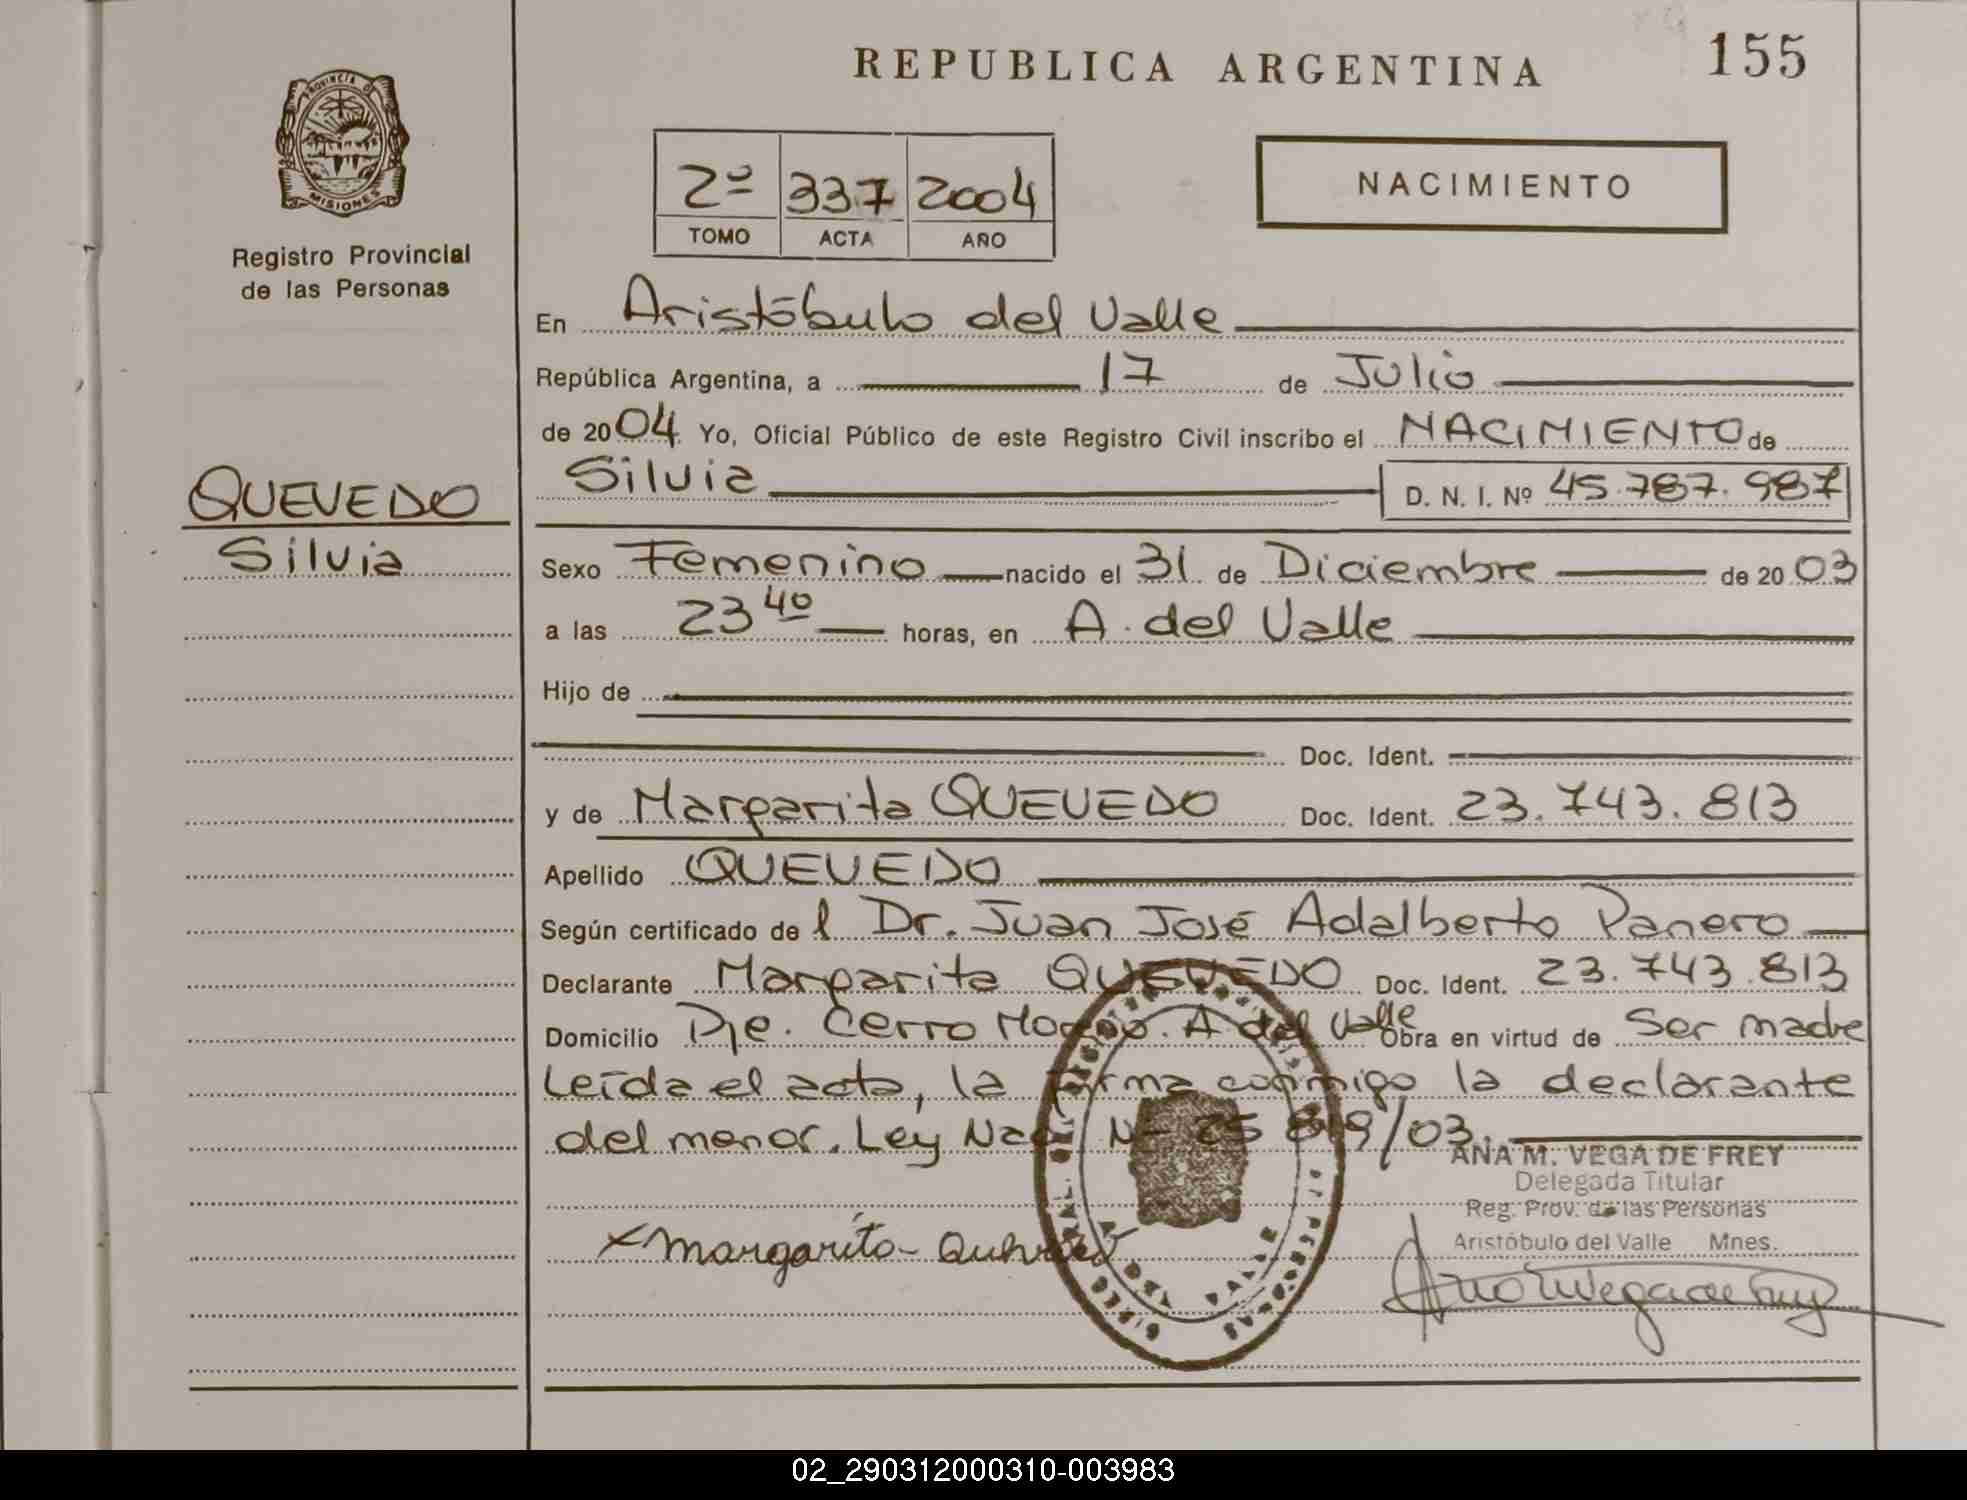 REPUBLICA ARGENTINA
155
PROVINCIA DE
MISIONES
Registro Provincial
de las Personas
2º 337 2004
TOMO ACTA AÑO
NACIMIENTO
En Aristóbulo del Valle
República Argentina, a 17 de Julio
de 2004 Yo, Oficial Público de este Registro Civil inscribo el NACIMIENTO de
Silvia D. N. I. Nº 45.787.987
QUEVEDO
Silvia
Sexo Femenino nacido el 31 de Diciembre de 2003
a las 23 40 horas, en A. del Valle
Hijo de
Doc. Ident.
y de Margarita QUEVEDO Doc. Ident. 23.743.813
Apellido QUEVEDO
Según certificado del Dr. Juan José Adalberto Panero
Declarante Margarita QUEVEDO Doc. Ident. 23.743.813
Domicilio Pje. Cerro Moreno. A del Valle Obra en virtud de Ser madre
Leída el acta, la firma conmigo la declarante
del menor. Ley Nac. Nº 25 819/03.
ANA M. VEGA DE FREY
Delegada Titular
Reg. Prov. de las Personas
Aristóbulo del Valle Mnes.
x Margarita
02_290312000310-003983